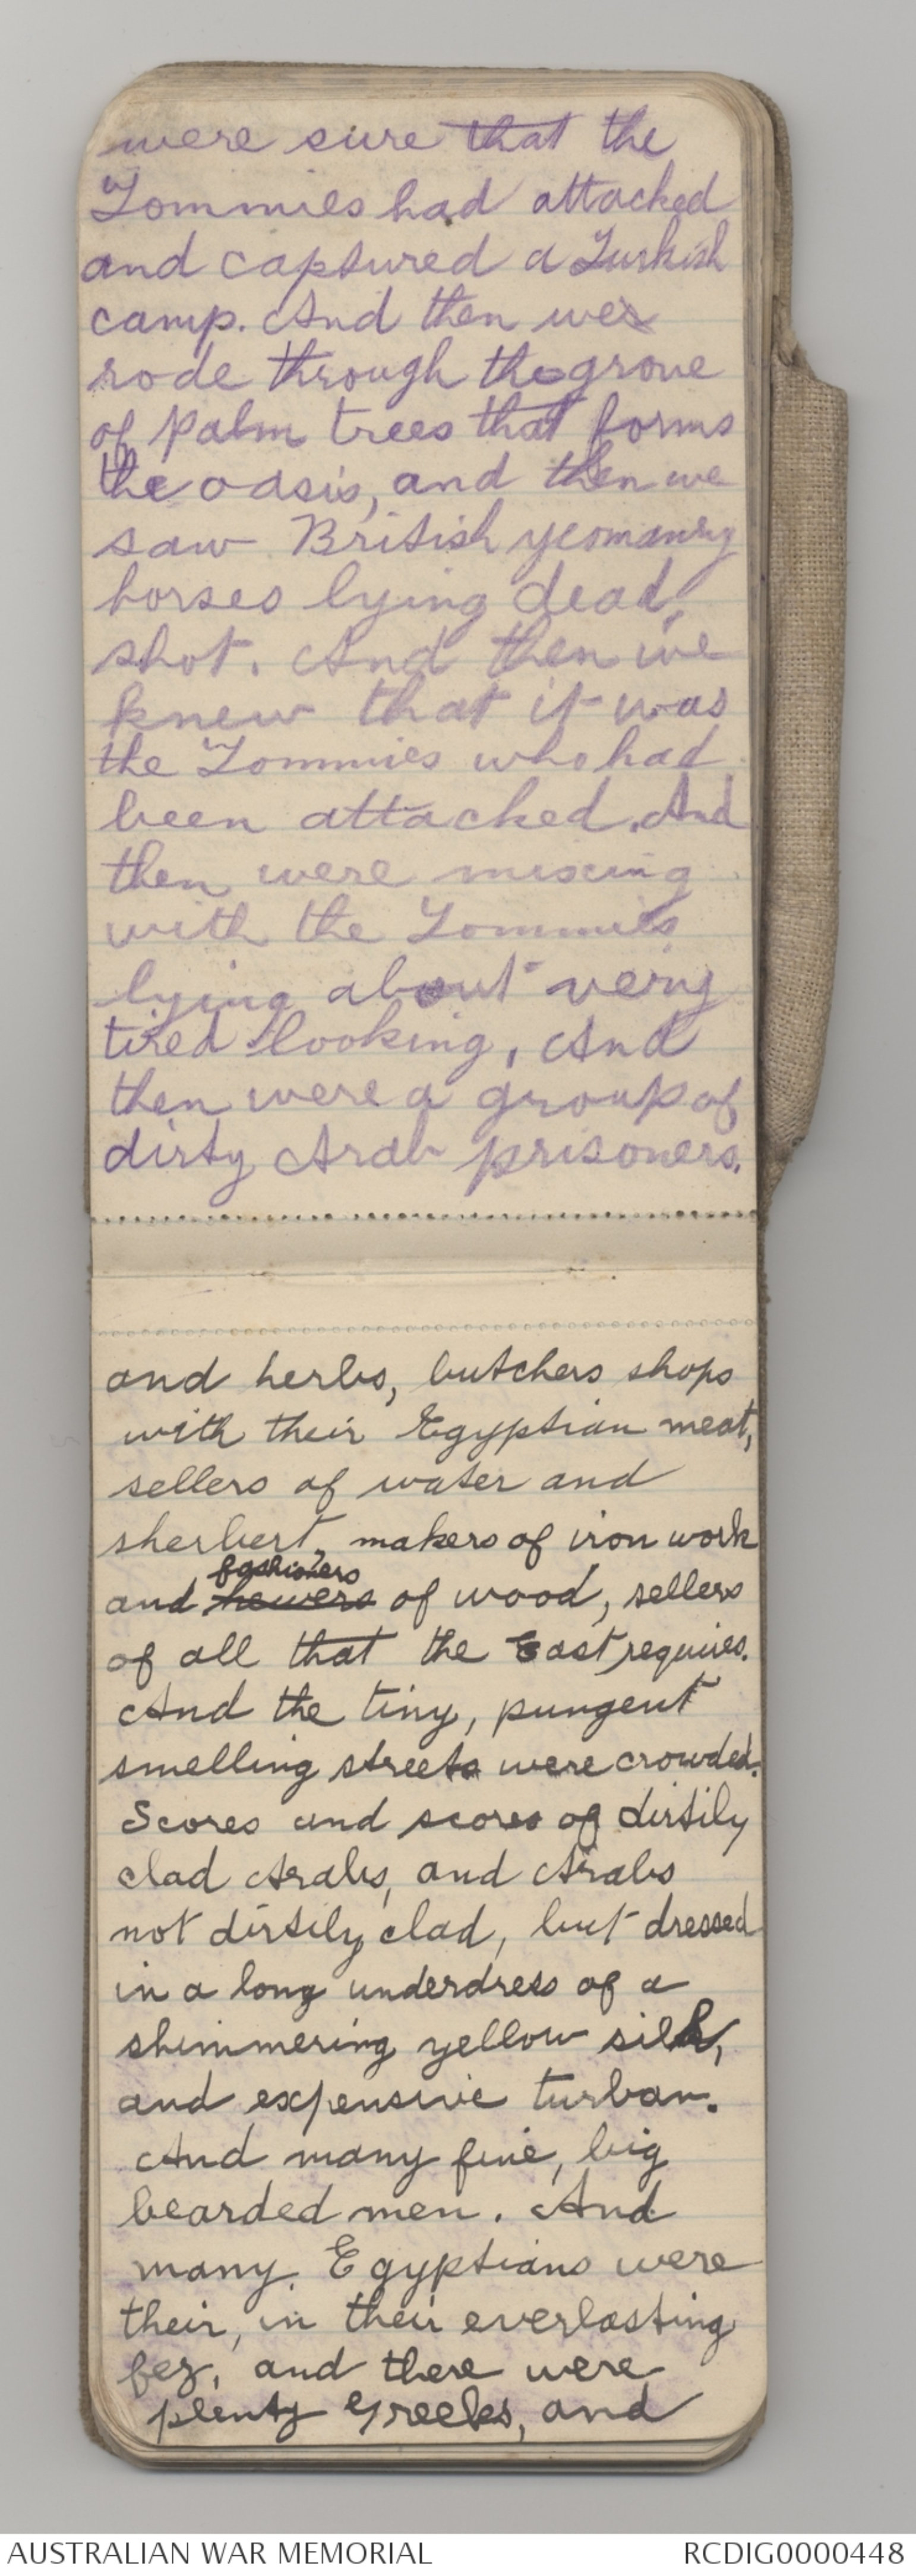 were sure that the
Tommies had attacked
and captured a Turkish
camp. And then we
rode through the grove
of palm trees that forms
the oasis, and then we
saw British yeomanry
horses lying dead,
shot. And then we
knew that it was
the Tommies who had
been attacked. And
then were mixing
with the Tommies
lying about very
tired looking, And
then were a group of
dirty Arab prisoners.
and herbs, butchers shops
with their Egyptian meat,
sellers of water and
sherbert, makers of iron work
fashioners
and hewers of wood, sellers
of all that the East requires.
And the tiny, pungent
smelling streets were crowded.
Scores and scores of dirtily
clad Arabs, and Arabs
not dirtily clad, but dressed
in a long underdress of a
shimmering yellow silk,
and expensive turban.
And many fine, big
bearded men. And
many Egyptians were
their, in their everlasting
fez, and there were
plenty Greeks, and
AUSTRALIAN WAR MEMORIAL
RCDIG0000448